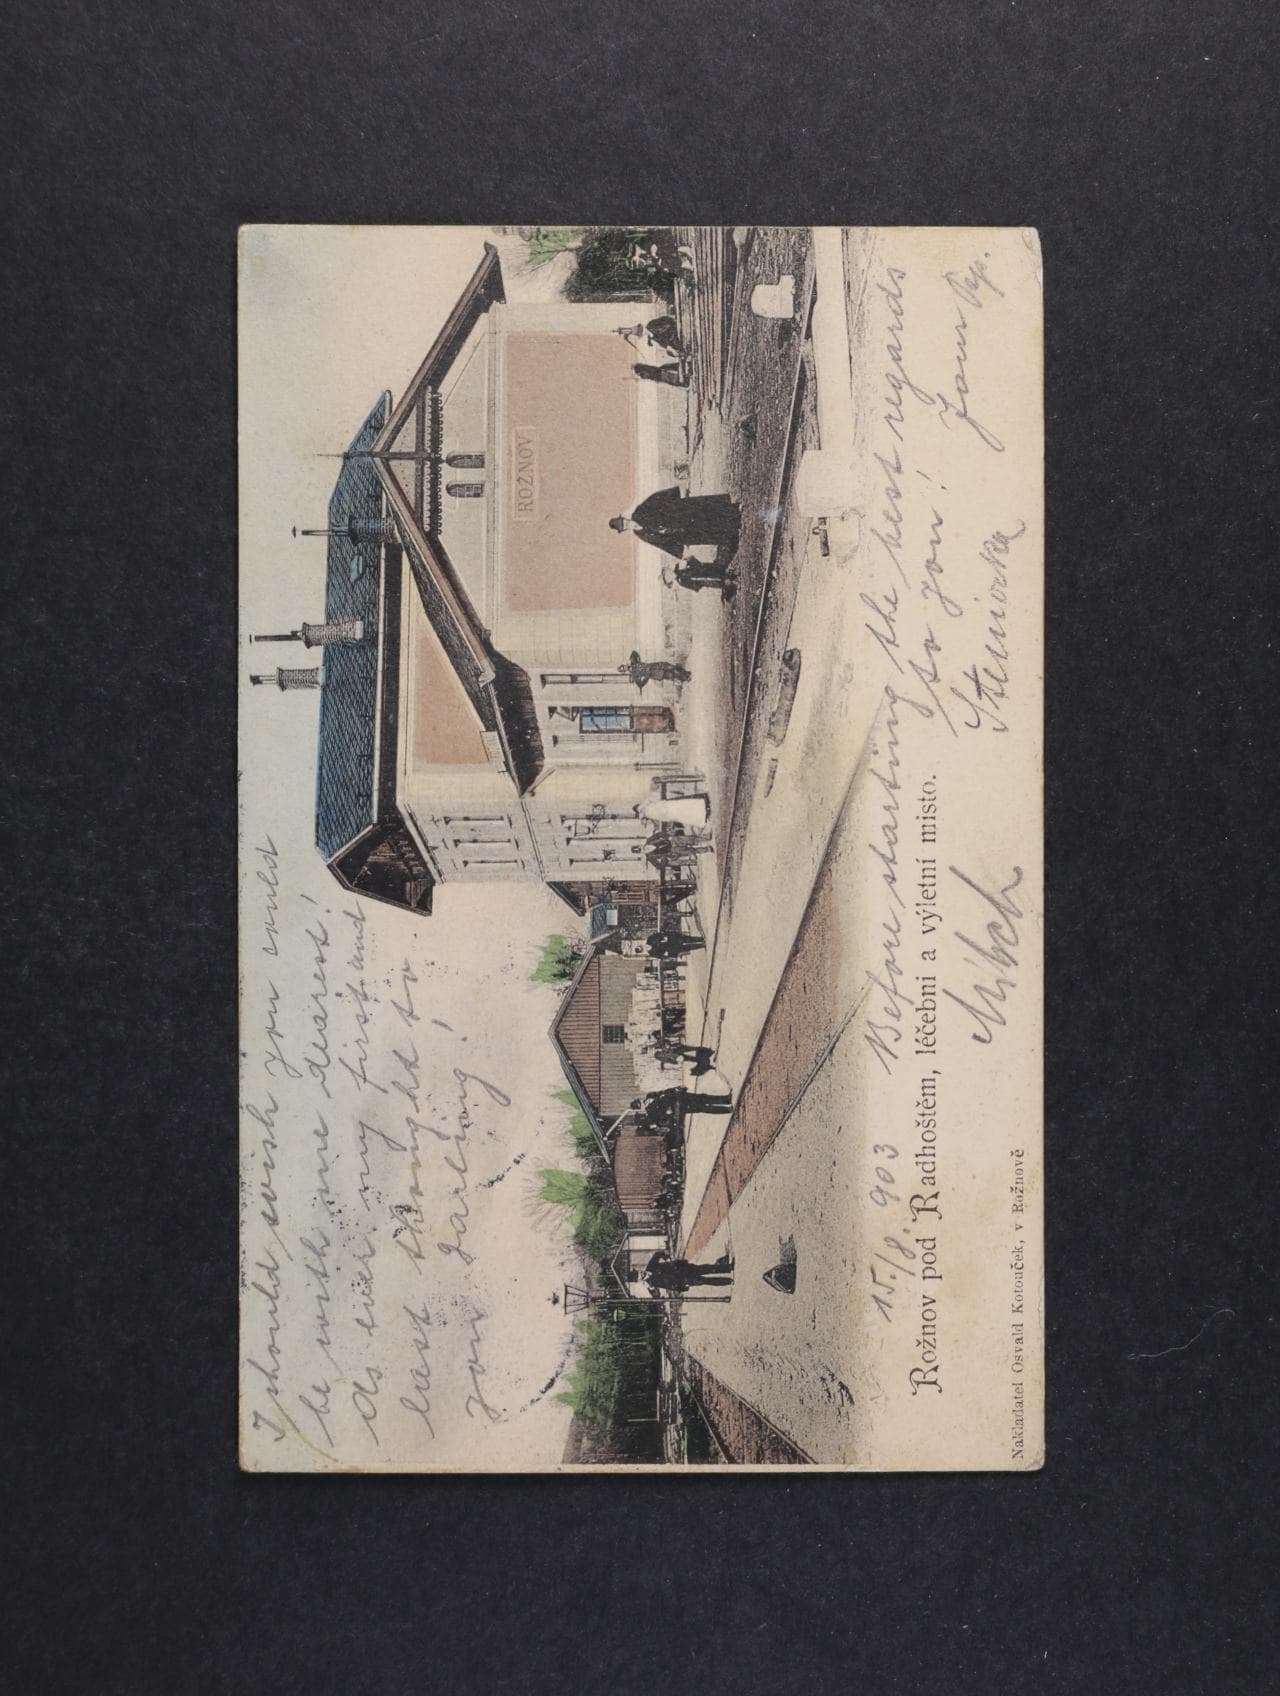 I should wish you could
be with me dearest!
As ever my first and
last thought to
your darling!
ROŽNOV
15./8. 903 Before starting the best regards
to you! Your Pep.
Rožnov pod Radhoštěm, léčební a výletní místo.
Nakladatel Osvald Kotouček, v Rožnově